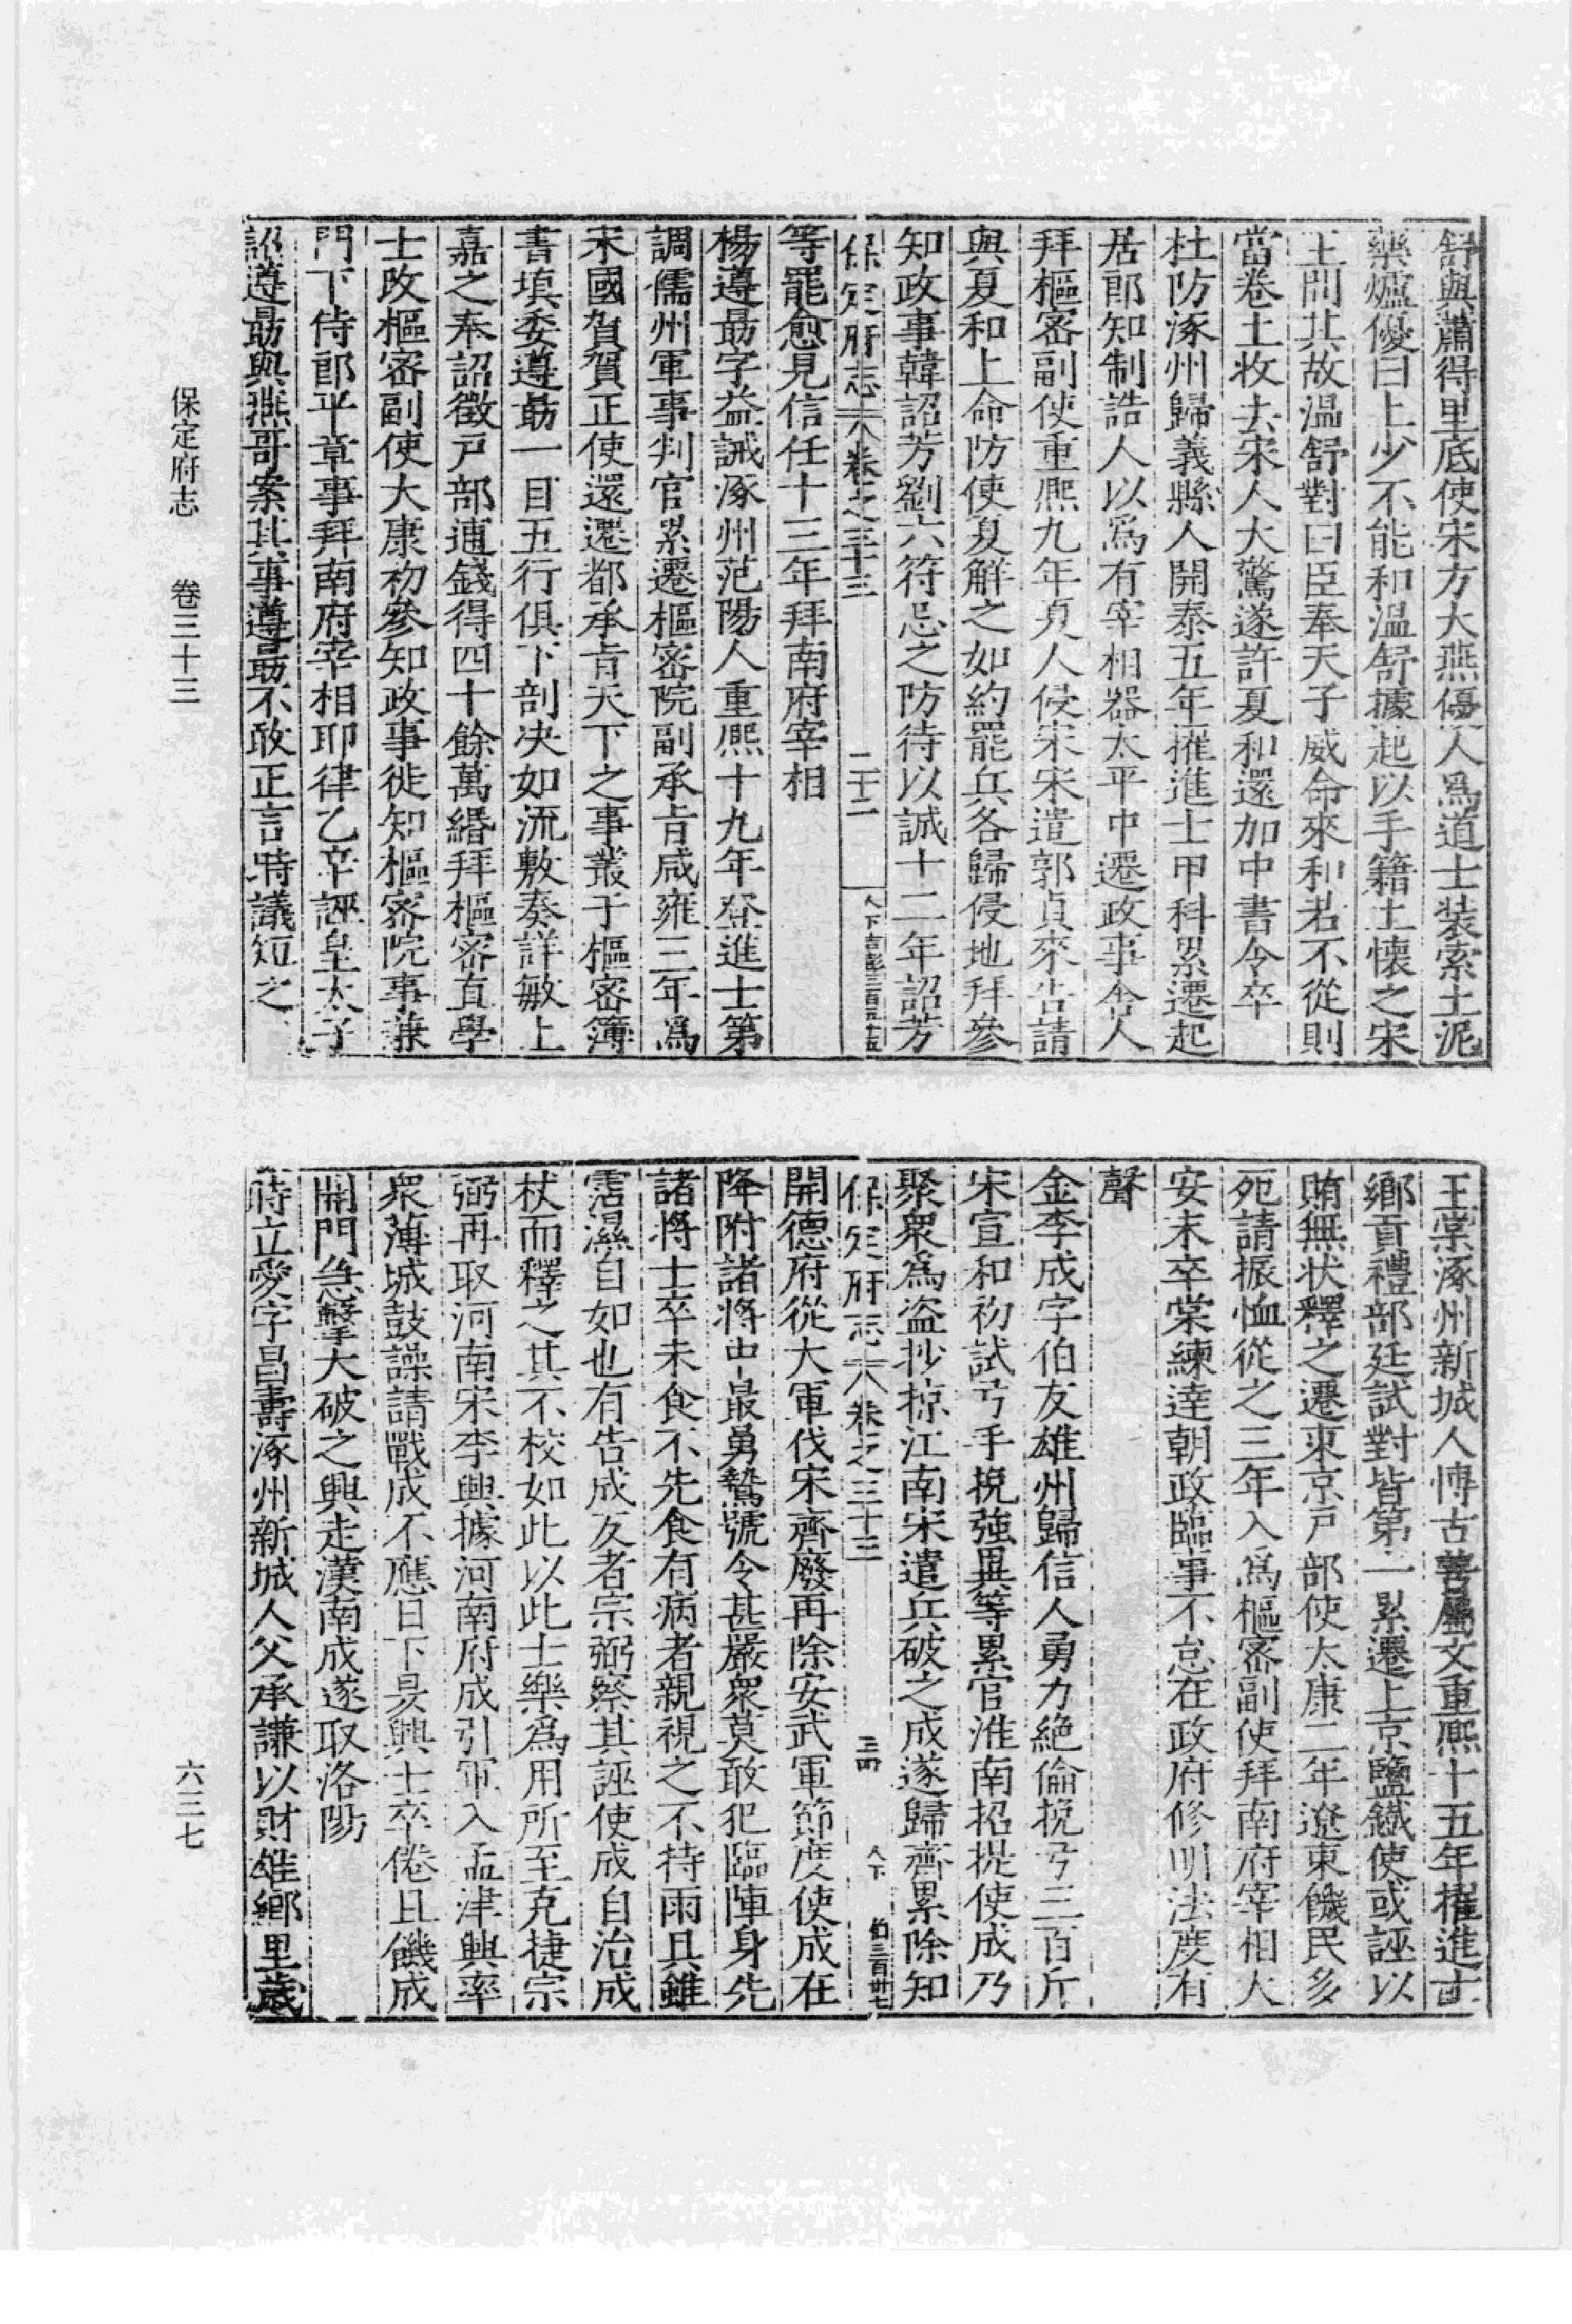 舒與蕭得里底使宋方大燕優人爲道士裝索土泥
藥爐優曰土少不能和溫舒據起以手籍土懷之宋
主問其故溫舒對曰臣奉天子威命來和若不從則
當卷土收去宋人大驚遂許夏和還加中書令卒
杜防涿州歸義縣人開泰五年擢進士甲科累遷起
居郎知制誥人以爲有宰相器太平中遷政事舍人
拜樞密副使重熙九年夏人侵宋宋遣郭貞來告請
與夏和上命防使夏解之如約罷兵各歸侵地拜參
知政事韓詔芳劉六符忌之防待以誠十二年詔芳
保定府志 卷之三十三 二十二
等罷愈見信任十三年拜南府宰相
楊遵勗字益誡涿州范陽人重熙十九年登進士第
調儒州軍事判官累遷樞密院副承旨咸雍三年爲
宋國賀正使還遷都承旨天下之事叢于樞密簿
書填委遵勗一目五行俱下剖决如流敷奏詳敏上
嘉之奉詔徵戸部逋錢得四十餘萬緡拜樞密直學
士改樞密副使大康初參知政事徙知樞密院事兼
門下侍郎平章事拜南府宰相耶律乙辛誣皇太子
詔遵勗與燕哥案其事遵勗不敢正言時議短之
王棠涿州新城人博古善屬文重熙十五年擢進士
鄉貢禮部廷試對皆第一累遷上京鹽鐵使或誣以
賄無狀釋之遷東京戸部使大康二年遼東饑民多
死請振恤從之三年入爲樞密副使拜南府宰相大
安末卒棠練達朝政臨事不怠在政府修明法度有
聲
金李成字伯友雄州歸信人勇力絶倫挽弓三百斤
宋宣和初試弓手挽強異等累官淮南招捉使成乃
聚衆爲盗抄掠江南宋遣兵破之成遂歸齊累除知
保定府志 卷之三十三
開德府從大軍伐宋齊廢再除安武軍節度使成在
降附諸將中最勇鷙號令甚嚴衆莫敢犯臨陣身先
諸將士卒未食不先食有病者親視之不持雨具雖
霑濕自如也有告成反者宗弼察其誣使成自治成
杖而釋之其不校如此以此士樂爲用所至克捷宗
弼再取河南宋李興據河南府成引軍入孟津興率
衆薄城鼓譟請戰成不應日下昃興士卒倦且饑成
開門急擊大破之興走漢南成遂取洛陽
時立愛字昌壽涿州新城人父承謙以財雄鄉里歲
保定府志 卷三十三
六三七